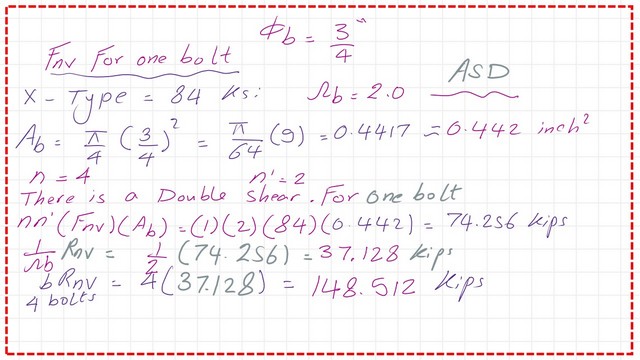 Φb = 3/4 "
Fnv For one bolt
ASD
X - Type = 84 Ksi Ωb = 2.0
Ab = π/4 (3/4)² = π/64 (9) = 0.4417 ≈ 0.442 inch²
n = 4 n' = 2
There is a Double shear. For one bolt
nn'(Fnv)(Ab) = (1)(2)(84)(0.442) = 74.256 Kips
1/Ωb Rnv = 1/2 (74.256) = 37.128 Kips
b Rnv = 4(37.128) = 148.512 Kips
4 bolts